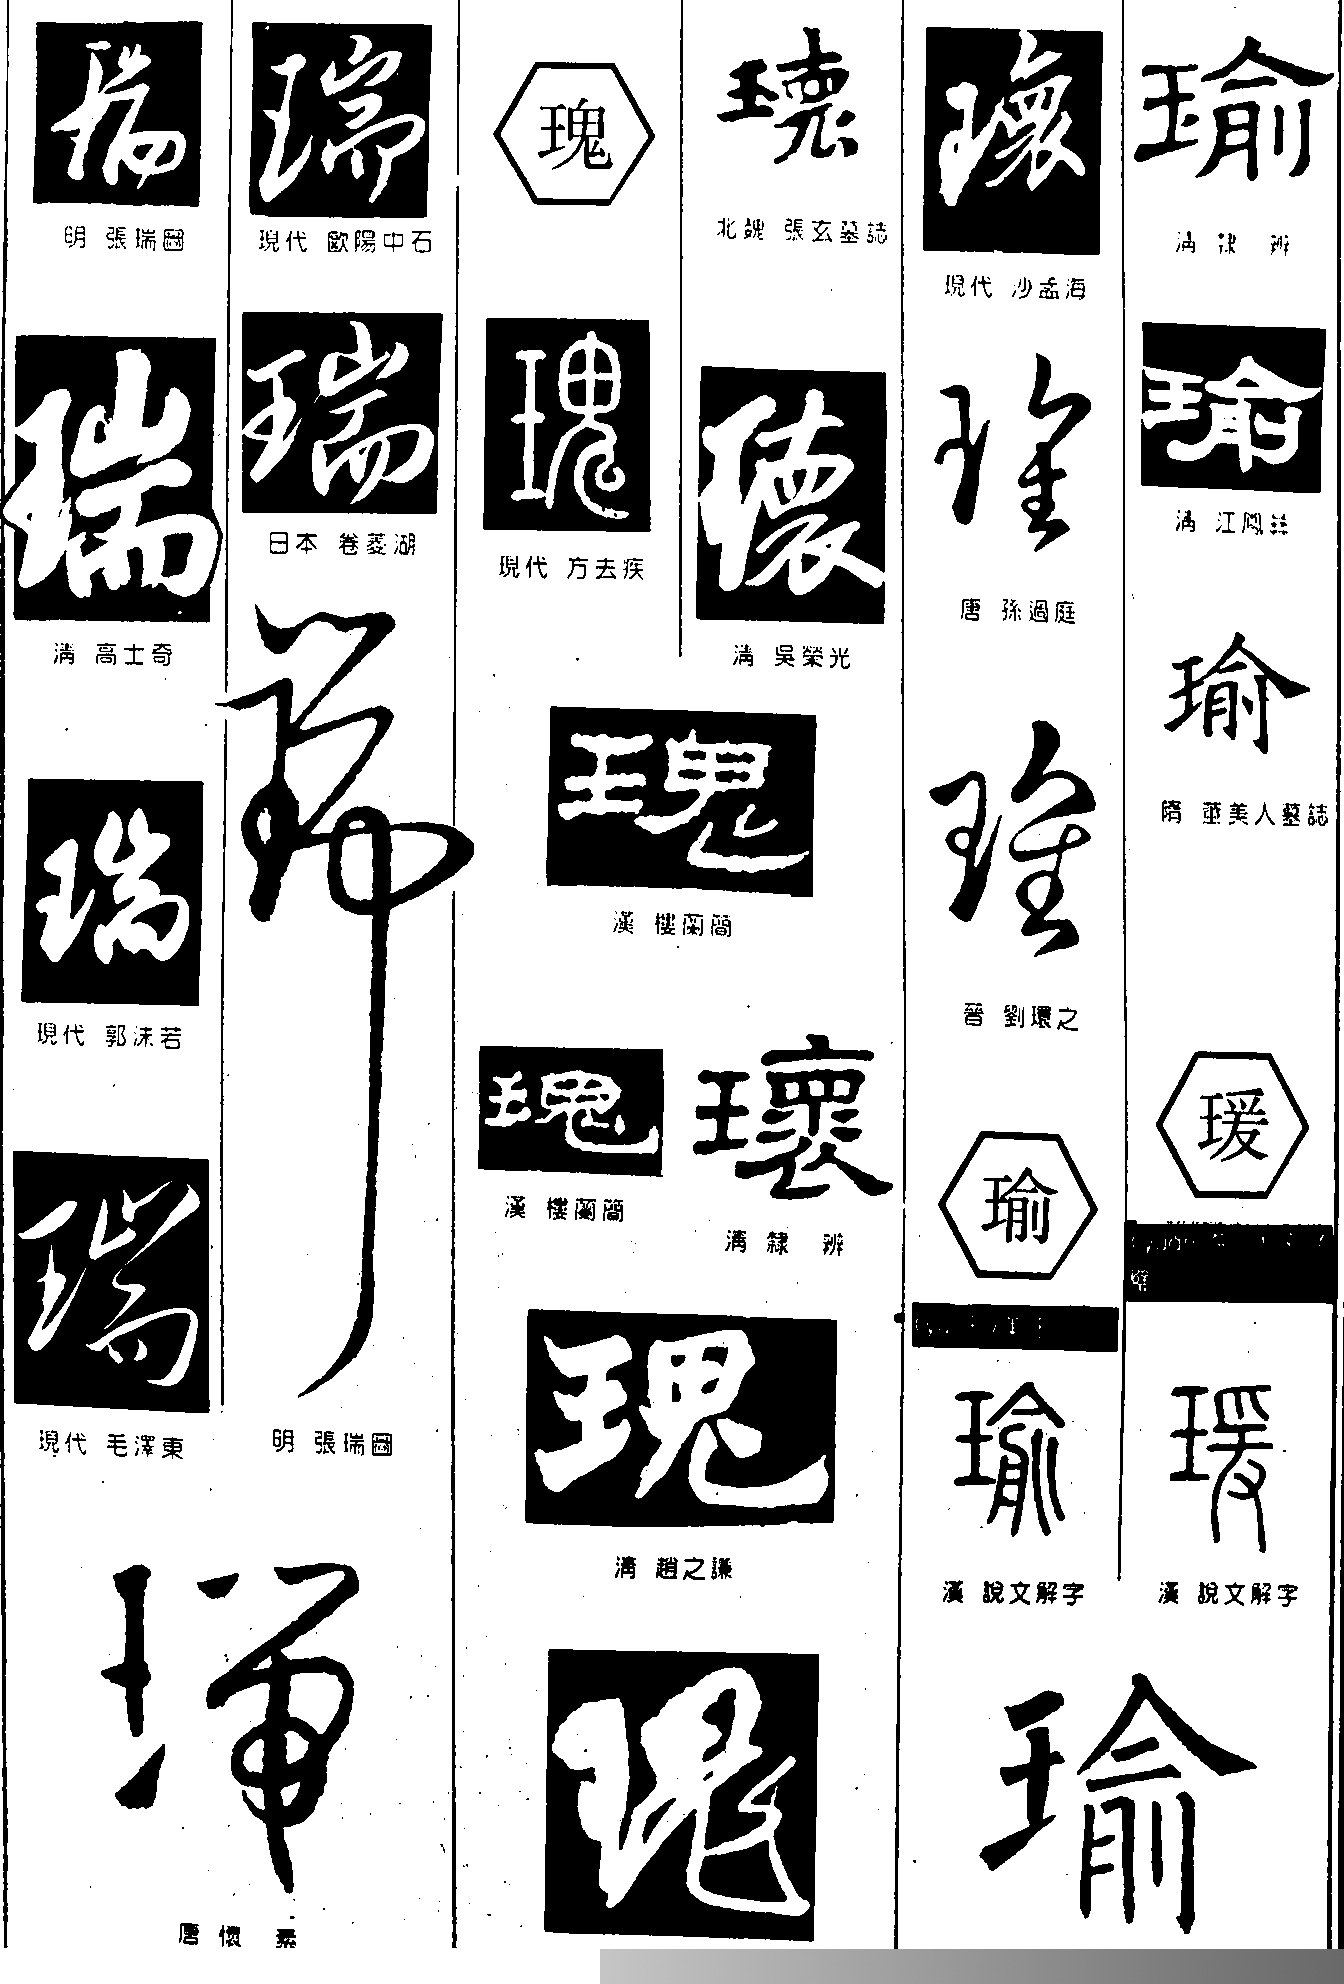 瑞
明 張瑞圖
瑞
清 高士奇
瑞
現代 郭沫若
瑞
現代 毛澤東
瑞
唐 懷 素
瑞
現代 歐陽中石
瑞
日本 卷菱湖
瑞
明 張瑞圖
瑰
瑰
現代 方去疾
瑰
漢 樓蘭簡
瑰
漢 樓蘭簡
瑰
清 趙之謙
瑰
北魏 張玄墓誌
清 吳榮光
瓌
清 隸 辨
現代 沙孟海
唐 孫過庭
晉 劉環之
瑜
瑜
漢 說文解字
瑜
瑜
清 隸 辨
瑜
清 江鳳
瑜
隋 董美人墓誌
瑗
瑗
漢 說文解字